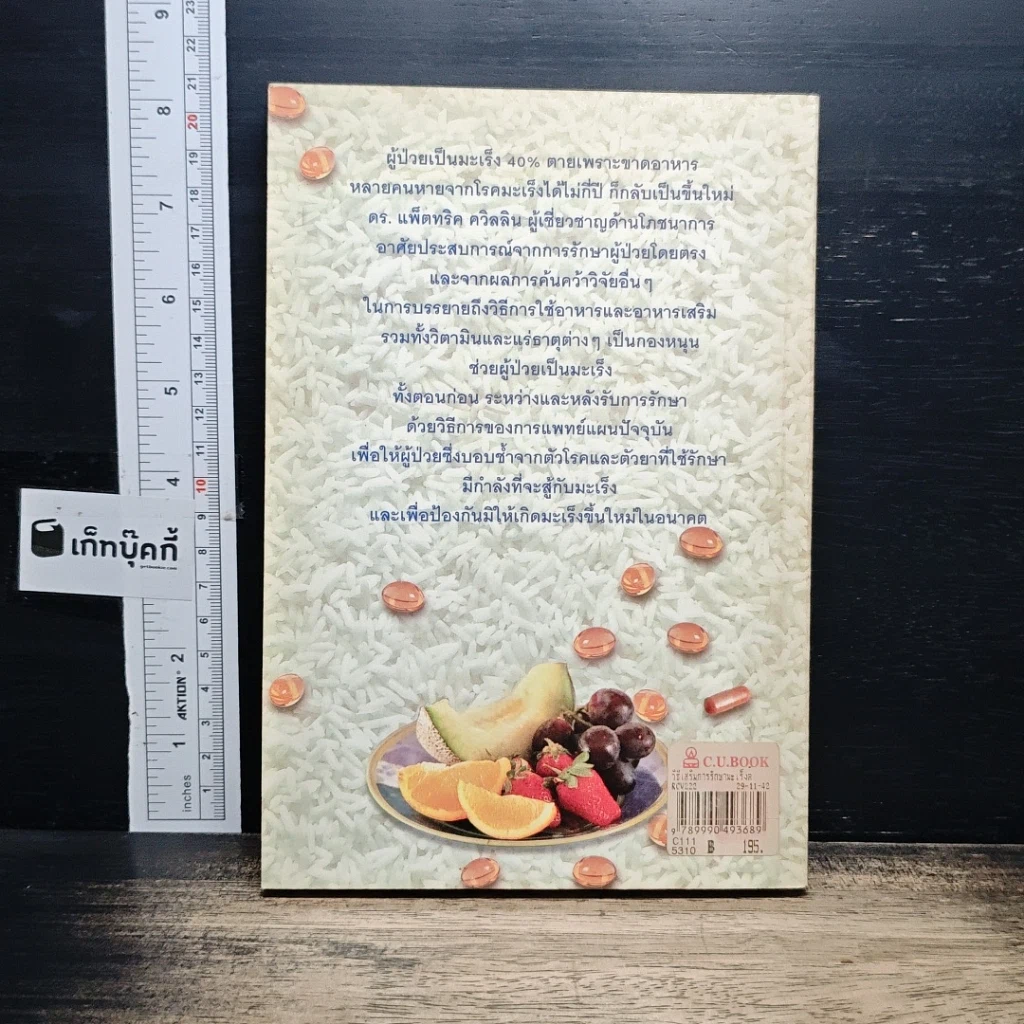 ผู้ป่วยเป็นมะเร็ง 40% ตายเพราะขาดอาหาร
หลายคนหายจากโรคมะเร็งได้ไม่กี่ปี ก็กลับเป็นขึ้นใหม่
ดร. แพ็ตทริค ควิลลิน ผู้เชี่ยวชาญด้านโภชนาการ
อาศัยประสบการณ์จากการรักษาผู้ป่วยโดยตรง
และจากผลการค้นคว้าวิจัยอื่นๆ
ในการบรรยายถึงวิธีการใช้อาหารและอาหารเสริม
รวมทั้งวิตามินและแร่ธาตุต่างๆ เป็นกองหนุน
ช่วยผู้ป่วยเป็นมะเร็ง
ทั้งตอนก่อน ระหว่างและหลังรับการรักษา
ด้วยวิธีการของการแพทย์แผนปัจจุบัน
เพื่อให้ผู้ป่วยซึ่งบอบช้ำจากตัวโรคและตัวยาที่ใช้รักษา
มีกำลังที่จะสู้กับมะเร็ง
และเพื่อป้องกันมิให้เกิดมะเร็งขึ้นใหม่ในอนาคต
C.U.BOOK
วิธีเสริมการรักษามะเร็งด
29-11-42
9 789990 493689
C111
5310 B 195.
เก็ทบุ๊คกี้
getbookie.com
9
8
7
6
5
4
2
1
inches
AKTION
23
22
21
20
19
18
17
16
15
14
13
12
11
10
9
8
7
6
5
4
3
2
1